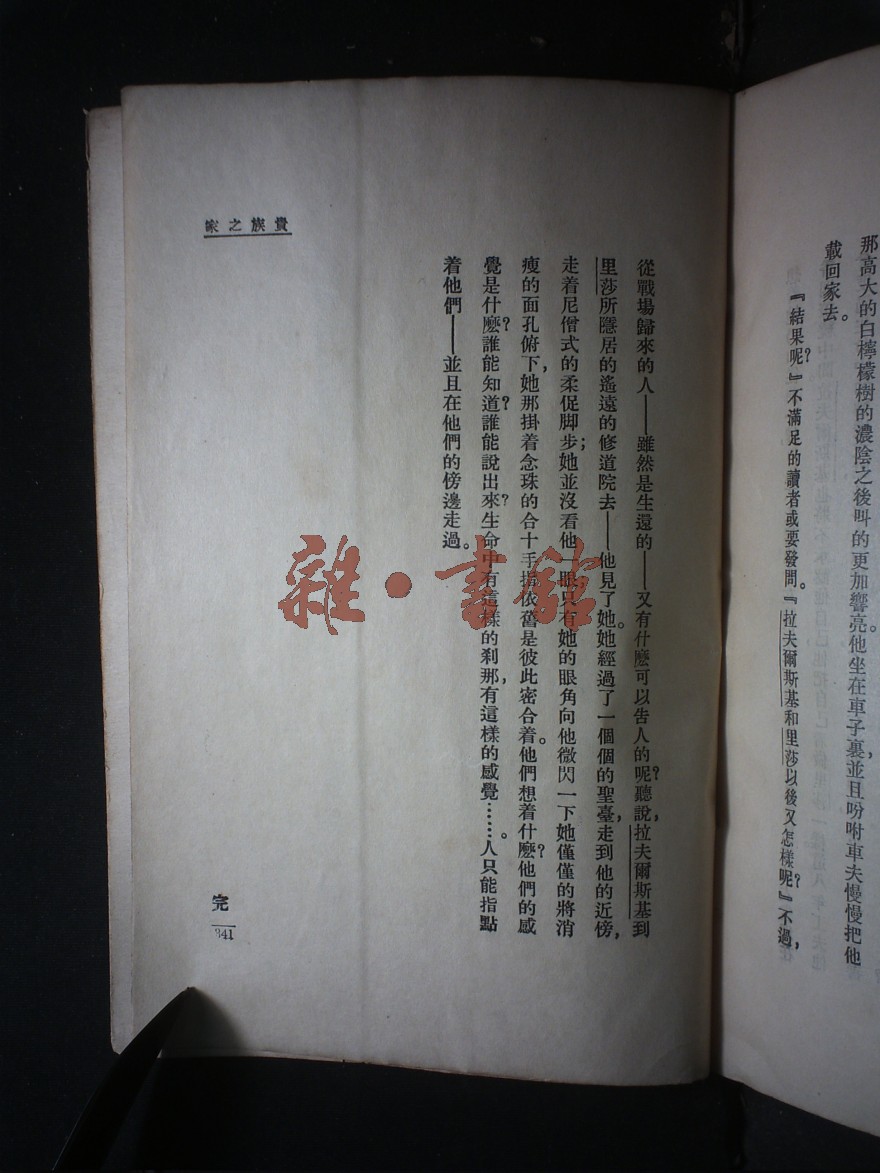 那高大的白檸檬樹的濃陰之後叫的更加響亮。他坐在車子裏，並且吩咐車夫慢慢把他
載回家去。
『結果呢？』不滿足的讀者或要發問。『拉夫爾斯基和里莎以後又怎樣呢？』不過，
貴族之家
從戰場歸來的人——雖然是生還的——又有什麼可以告人的呢？聽說，拉夫爾斯基到
里莎所隱居的遙遠的修道院去——他見了她。她經過了一個個的聖臺，走到他的近傍，
走着尼僧式的柔促脚步；她並沒看他一眼；只有她的眼角向他微閃一下她僅僅的將消
瘦的面孔俯下，她那掛着念珠的合十手指依舊是彼此密合着。他們想着什麼？他們的感
覺是什麼？誰能知道？誰能說出來？生命中有這樣的刹那，有這樣的感覺……。人只能指點
着他們——並且在他們的傍邊走過。
完
341
雜·書館